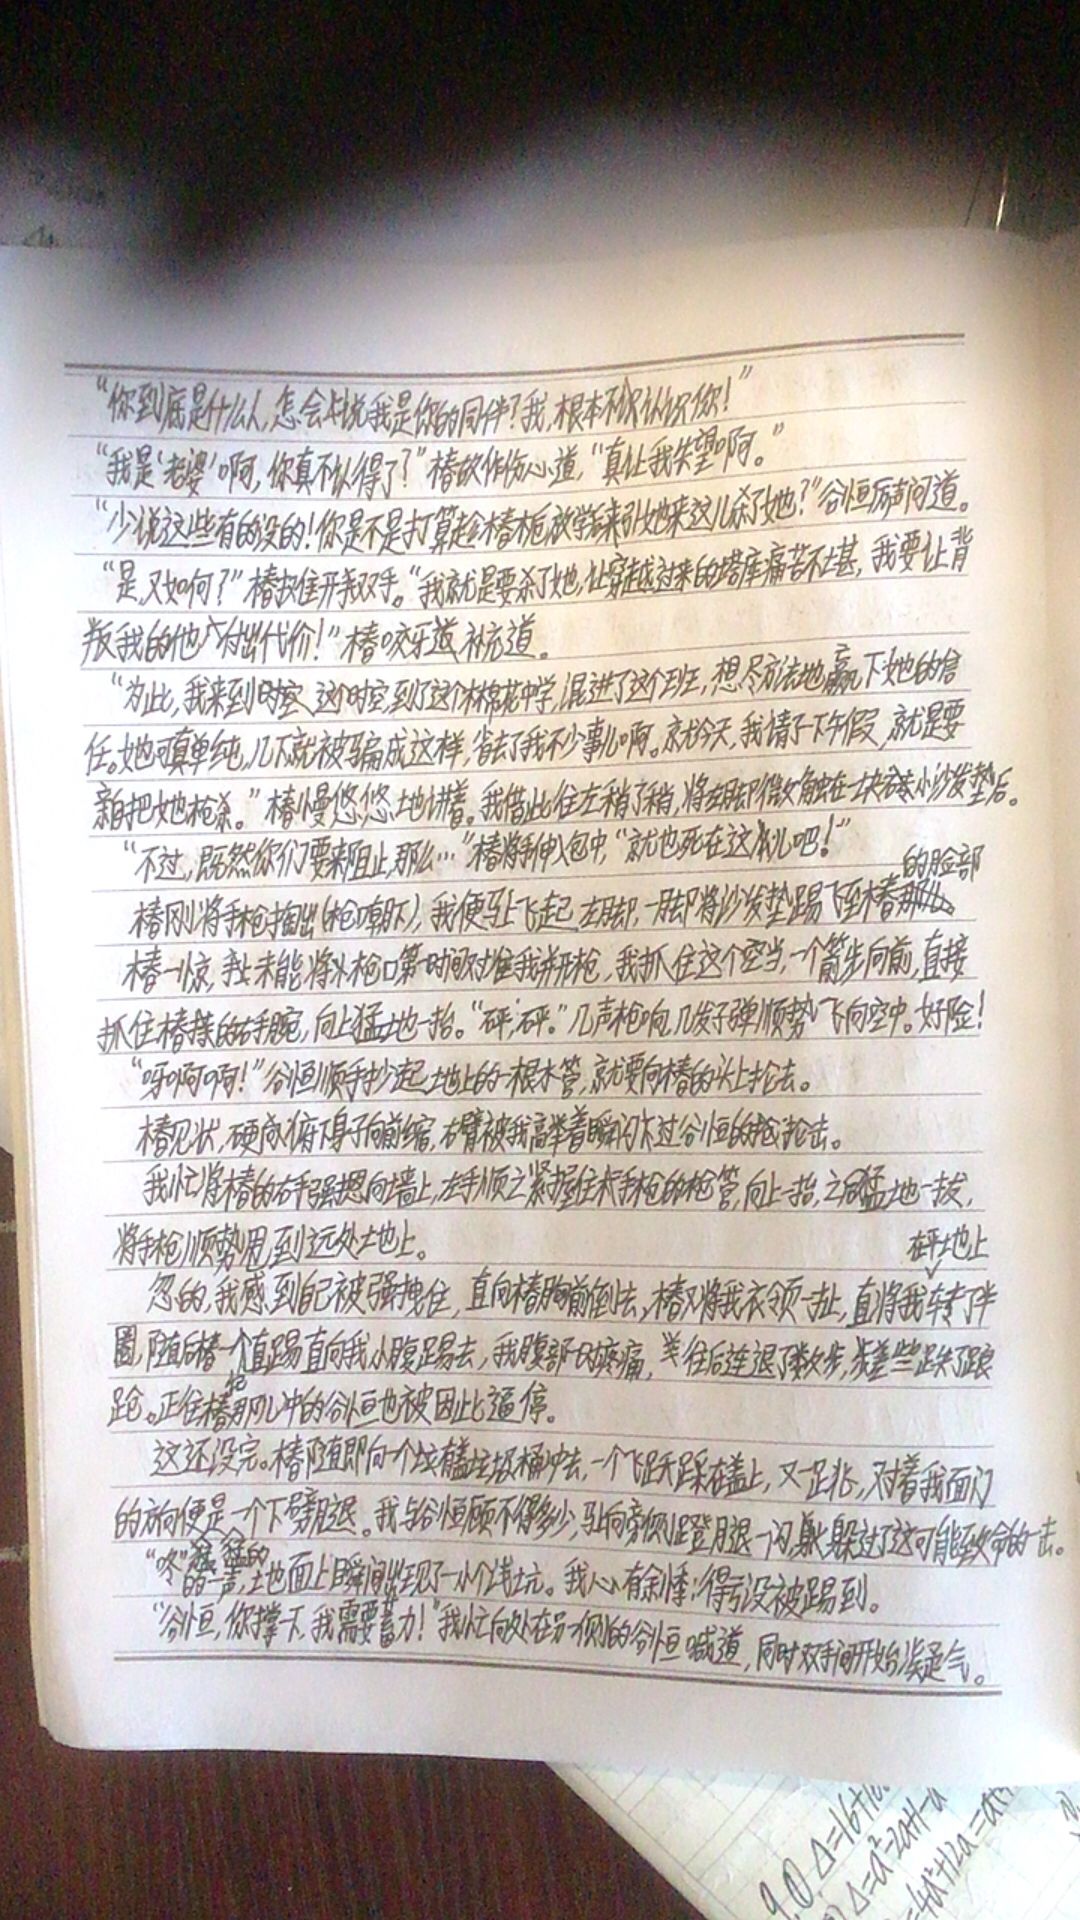 “你到底是什么人,怎会说我是你的同伴?我,根本不认识你!”
“我是‘老婆’啊,你真不认得了?”椿故作伤心道,“真让我失望啊。”
“少说这些有的没的!你是不是打算趁椿栀放学后来引她来这儿杀了她?”谷恒厉声问道。
“是,又如何?”椿摊开双手。“我就是要杀了她,让穿越过来的塔库痛苦不堪,我要让背
叛我的他付出代价!”椿咬牙道,补充道。
“为此,我来到这个时空,到了这个木棉花中学,混进了这个班,想尽方法地赢下她的信
任。她可真单纯,几下就被骗成这样,省去了我不少事儿啊。就今天,我请了下午假,就是要
亲自把她枪杀。”椿慢悠悠地讲着。我借此往左稍了稍,将左脚微微触在一块小沙发垫后。
“不过,既然你们要来阻止,那么…”椿将手伸入包中,“就也死在这儿吧!”
的脸部
椿刚将手枪掏出(枪口朝下),我便马上飞起左脚,一脚将沙发垫踢飞至椿
椿一惊,未能将枪口第一时间对准我并开枪,我抓住这个空当,一个箭步向前,直接
抓住椿的右手腕,向上猛地一抬。“砰,砰。”几声枪响,几发子弹顺势飞向空中。好险!
“呀啊啊!”谷恒顺手抄起地上的一根水管,就要向椿的头上抡去。
椿见状,硬俯下身子向前缩,右臂被我高举着瞬闪过谷恒的抡击。
我忙将椿的右手强摁向墙上,左手顺之紧握住手枪的枪管,向上一抬,之后猛地一拔,
将手枪顺势甩到远处土地上。
在平地上
忽的,我感到自己被强拽住,直向椿胸前倒去,椿又将我衣领一扯,直将我转了半
圈,随后椿一个直踢直向我小腹踢去,我腹部一时疼痛,往后连退了数步,差些跌了踉
跄。正往椿那儿冲的谷恒也被因此逼停。
这还没完。椿随即向一个有盖垃圾桶冲去,一个飞跃踩在盖上,又一起跳,对着我面门
的方向便是一个下劈腿。我与谷恒顾不得多少,马上向旁侧蹬腿一闪身,躲过了这可能致命的一击。
“咚”猛的一声,土地面上瞬间出现了一个小浅坑。我心有余悸:得亏没被踢到。
“谷恒,你撑一下,我需要蓄力!”我忙向处在另一侧的谷恒喊道,同时双手间开始凝起气。
9.① Δ=16+
Δ=a²-2a+1-a
=4a²+12a=a+